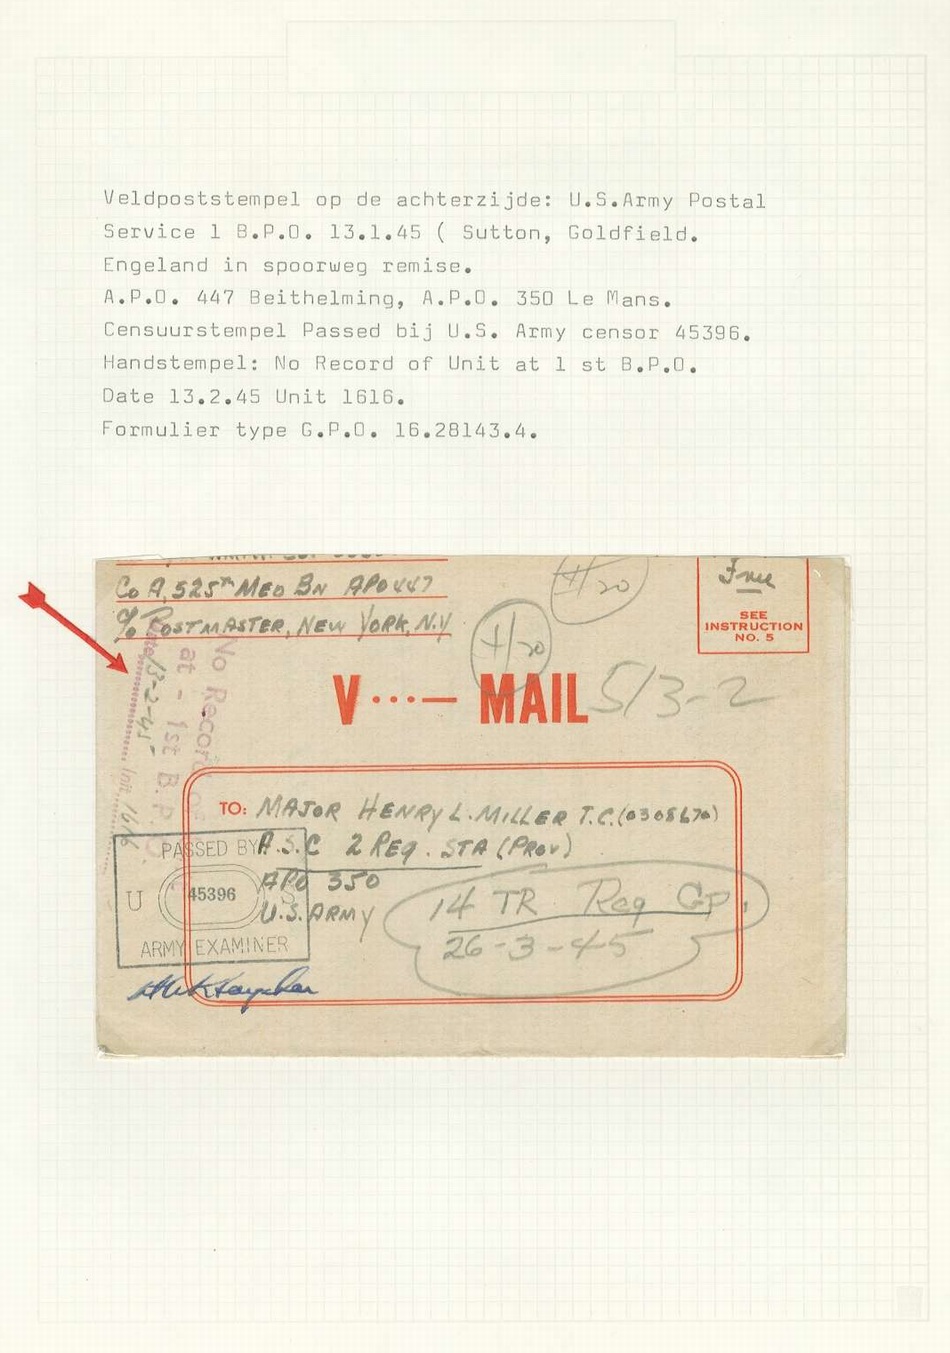 Veldpoststempel op de achterzijde: U.S.Army Postal
Service 1 B.P.O. 13.1.45 ( Sutton, Goldfield.
Engeland in spoorweg remise.
A.P.O. 447 Beithelming, A.P.O. 350 Le Mans.
Censuurstempel Passed bij U.S. Army censor 45396.
Handstempel: No Record of Unit at 1 st B.P.O.
Date 13.2.45 Unit 1616.
Formulier type G.P.O. 16.28143.4.
Co A, 525th MED BN APO 447
c/o POSTMASTER, NEW YORK, N.Y
Free
SEE
INSTRUCTION
NO. 5
1/20
1/20
V ···— MAIL
5/3-2
No Record of
at - 1st B.P.O.
Date 13-2-45 Init. 1616
TO: MAJOR HENRY L. MILLER T.C. (0308670)
A.S.C 2 REG. STA (PROV)
APO 350
U.S. ARMY
14 TR Reg Gp.
26-3-45
PASSED BY
U 45396 S
ARMY EXAMINER